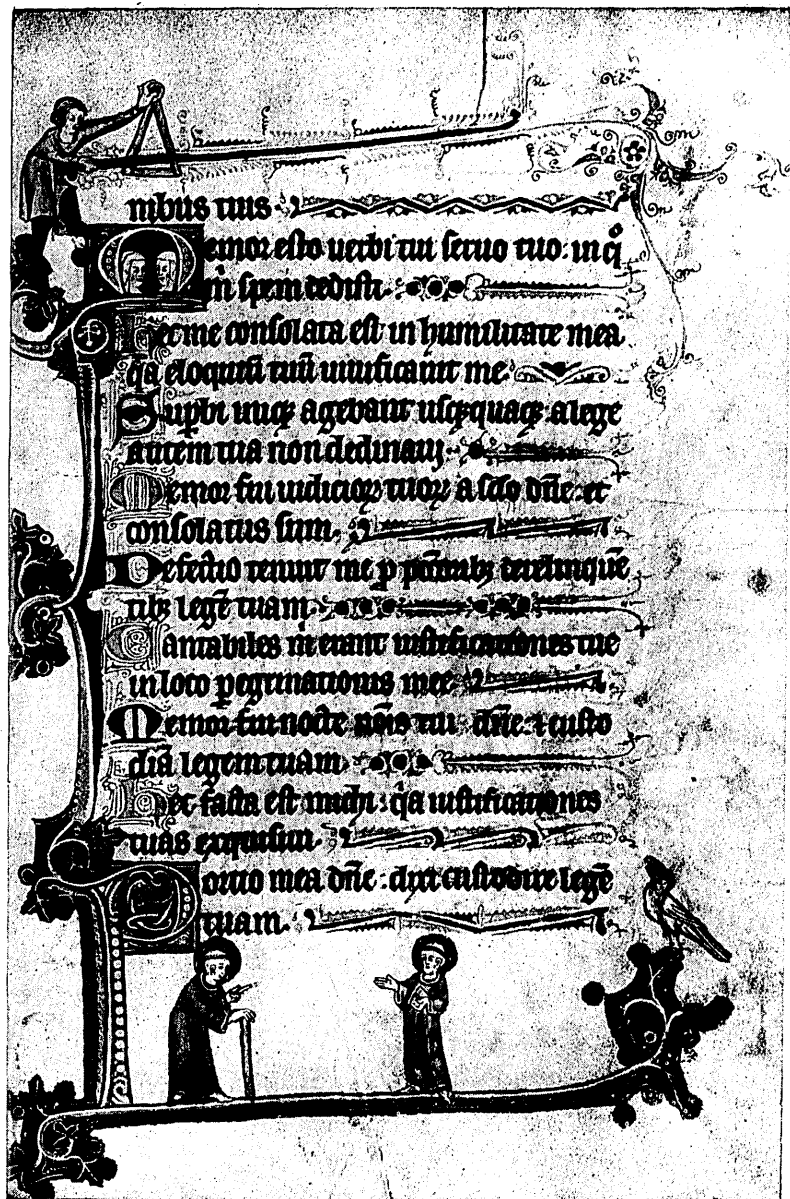 nibus tuis
Memor esto uerbi tui seruo tuo: in qͦ
m̄ spem dedisti.
Hec me consolata est in humilitate mea
q̄a eloquiū tuū uiuificauit me
Suꝑbi iniq̨ agebant usq̨quaq̨: a lege
autem tua non declinaui.
Memor fui iudicioꝝ tuoꝝ a sc̄lo dn̄e: et
consolatus sum.
Defectio tenuit me ꝓ pctōribꝫ derelinquē
tibꝫ legē tuam
Cantabiles m̄ erant iustificationes tue
in loco ꝑegrinationis mee
Memor fui nocte nōīs tui dn̄e: ⁊ custo
diui legem tuam
Hec facta est michi: q̄a iustificationes
tuas exquisiui.
Portio mea dn̄e: dixi custodire legē
tuam.